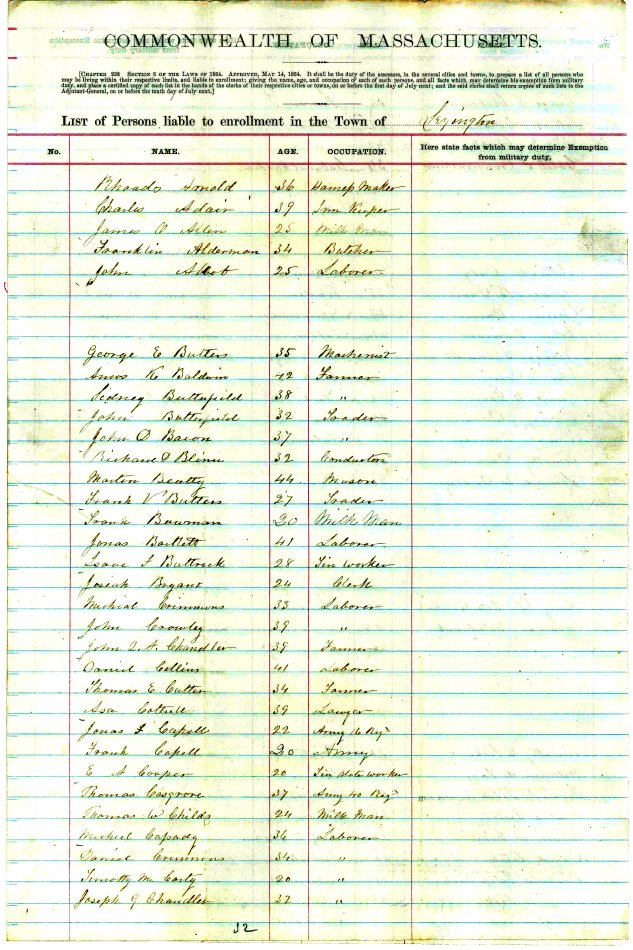 COMMONWEALTH OF MASSACHUSETTS.
[CHAPTER 238 SECTION 5 OF THE LAWS OF 1864. APPROVED, MAY 14, 1864. It shall be the duty of the assessors, in the several cities and towns, to prepare a list of all persons who
may be living within their respective limits, and liable to enrollment; giving the name, age, and occupation of each of such persons, and all facts which may determine his exemption from military
duty, and place a certified copy of such list in the hands of the clerks of their respective cities or towns, on or before the first day of July next; and the said clerks shall return copies of such lists to the
Adjutant-General, on or before the tenth day of July next.]
LIST of Persons liable to enrollment in the Town of Lexington
No. NAME. AGE. OCCUPATION. Here state facts which may determine Exemption
from military duty.
Rhoads Arnold 36 Harness Maker
Charles Adair 39 Inn Keeper
James O Allen 25 Milk Man
Franklin Alderman 34 Butcher
John Abbot 25 Laborer
George E Butters 35 Machinist
Amos K Baldwin 42 Farmer
Sidney Butterfield 38 "
John Butterfield 32 Trader
John D Bacon 37 "
Richard D Blinn 32 Conductor
Morton Beatty 44 Meason
Frank V Butters 27 Trader
Frank Bowman 20 Milk Man
Jonas Bartlett 41 Laborer
Isaac F Buttrick 28 Tin worker
Josiah Bryant 24 Clerk
Michial Crimmins 33 Laborer
John Crowley 39 "
John Q. A. Chandler 39 Farmer
Daniel Collins 41 Laborer
Thomas E Cutter 34 Farmer
Asa Cottrell 39 Lawyer
Jonas F Capell 22 Army 16 Reg
Frank Capell 20 Army
E A Cooper 20 Tin plate worker
Thomas Cosgrove 37 Army 40 Reg
Thomas W Childs 24 Milk Man
Michiel Capady 36 Laborer
Daniel Crimmins 34 "
Timothy Mc Carty 20 "
Joseph G Chandler 32 "
32